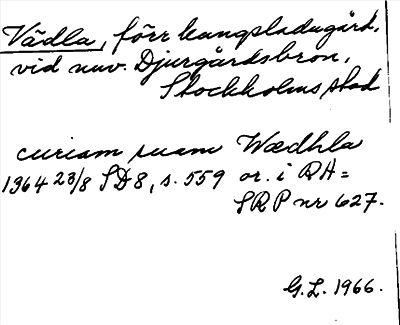 Vädla, förr kungsladugård,
vid nuv. Djurgårdsbron,
Stockholms stad
curiam suam Wædhla
1364 23/8 SD 8, s. 559 or. i RA =
SRP nr 627.
G.L. 1966.